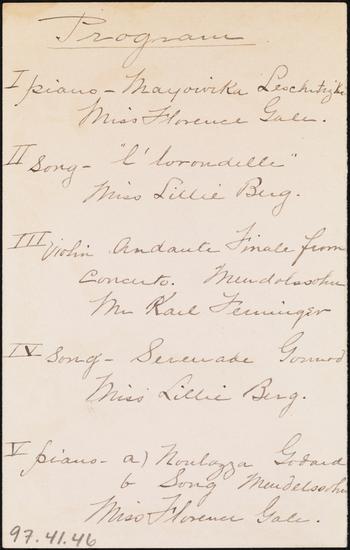 Program
I piano - Mayowika Leschitizki
Miss Florence Gale.
II Song - "l' lorondelle"
Miss Lillie Berg.
III Violin Andante Finale from
Concerto. Mendolssohn
Mr Karl Feininger
IV Song - Serenade Gounod
Miss Lillie Berg.
V piano - a) Noulazza Godard
b Song Mendelssohn
Miss Florence Gale.
97.41.46